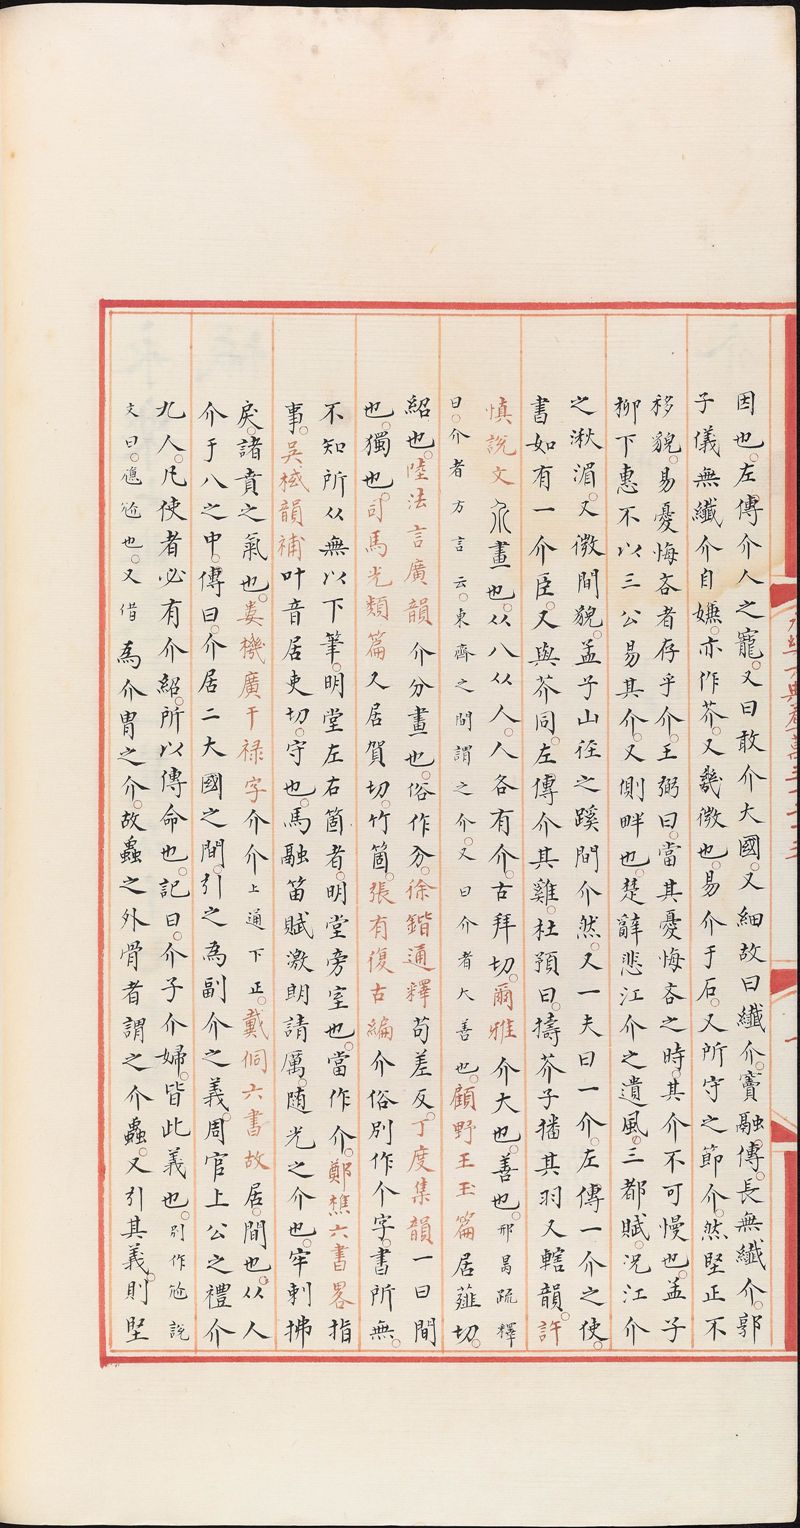 因也。左傳介人之寵。又曰敢介大國。又細故曰纖介。竇融傳。長無纖介。郭
子儀無纖介自嫌。亦作芥。又幾微也。易介于石。又所守之節介。然堅正不
移貌。易憂悔吝者存乎介。王弼曰。當其憂悔吝之時。其介不可慢也。孟子
柳下惠不以三公易其介。又側畔也。楚辭悲江介之遺風。三都賦。况江介
之湫湄。又微間貌。孟子山徑之蹊間介然。又一夫曰一介。左傳一介之使。
書如有一介臣。又與芥同。左傳介其雞。杜預曰。擣芥子播其羽又轄韻。許
慎說文畫也。从八从人。人各有介。古拜切。爾雅介大也。善也。邢昺疏釋
曰。介者方言云。東齊之間謂之介。又曰介者大善也。顧野王玉篇居薤切。
紹也。陸法言廣韻介分畫也。俗作分。徐鍇通釋苟差反。丁度集韻一曰間
也。獨也。司馬光類篇又居賀切。竹箇。張有復古編介俗別作个字。書所無。
不知所从無以下筆。明堂左右箇者。明堂旁室也。當作介。鄭樵六書畧指
事。吳棫韻補叶音居吏切。守也。馬融笛賦激朗請厲。随光之介也。牢剌拂
戾。諸賁之氣也。婁機廣干禄字介介上通下正。戴侗六書故居。間也。从人
介于八之中。傳曰。介居二大國之間。引之為副介之義。周官上公之禮介
九人。凡使者必有介紹。所以傳命也。記曰。介子介婦。皆此義也。别作尬說
文曰。尲尬也。又借為介冑之介。故蟲之外骨者謂之介蟲。又引其義。則堅